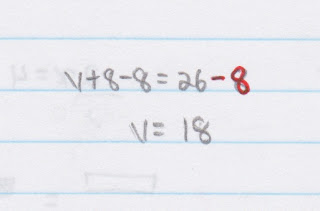 v+8-8=26-8
v=18